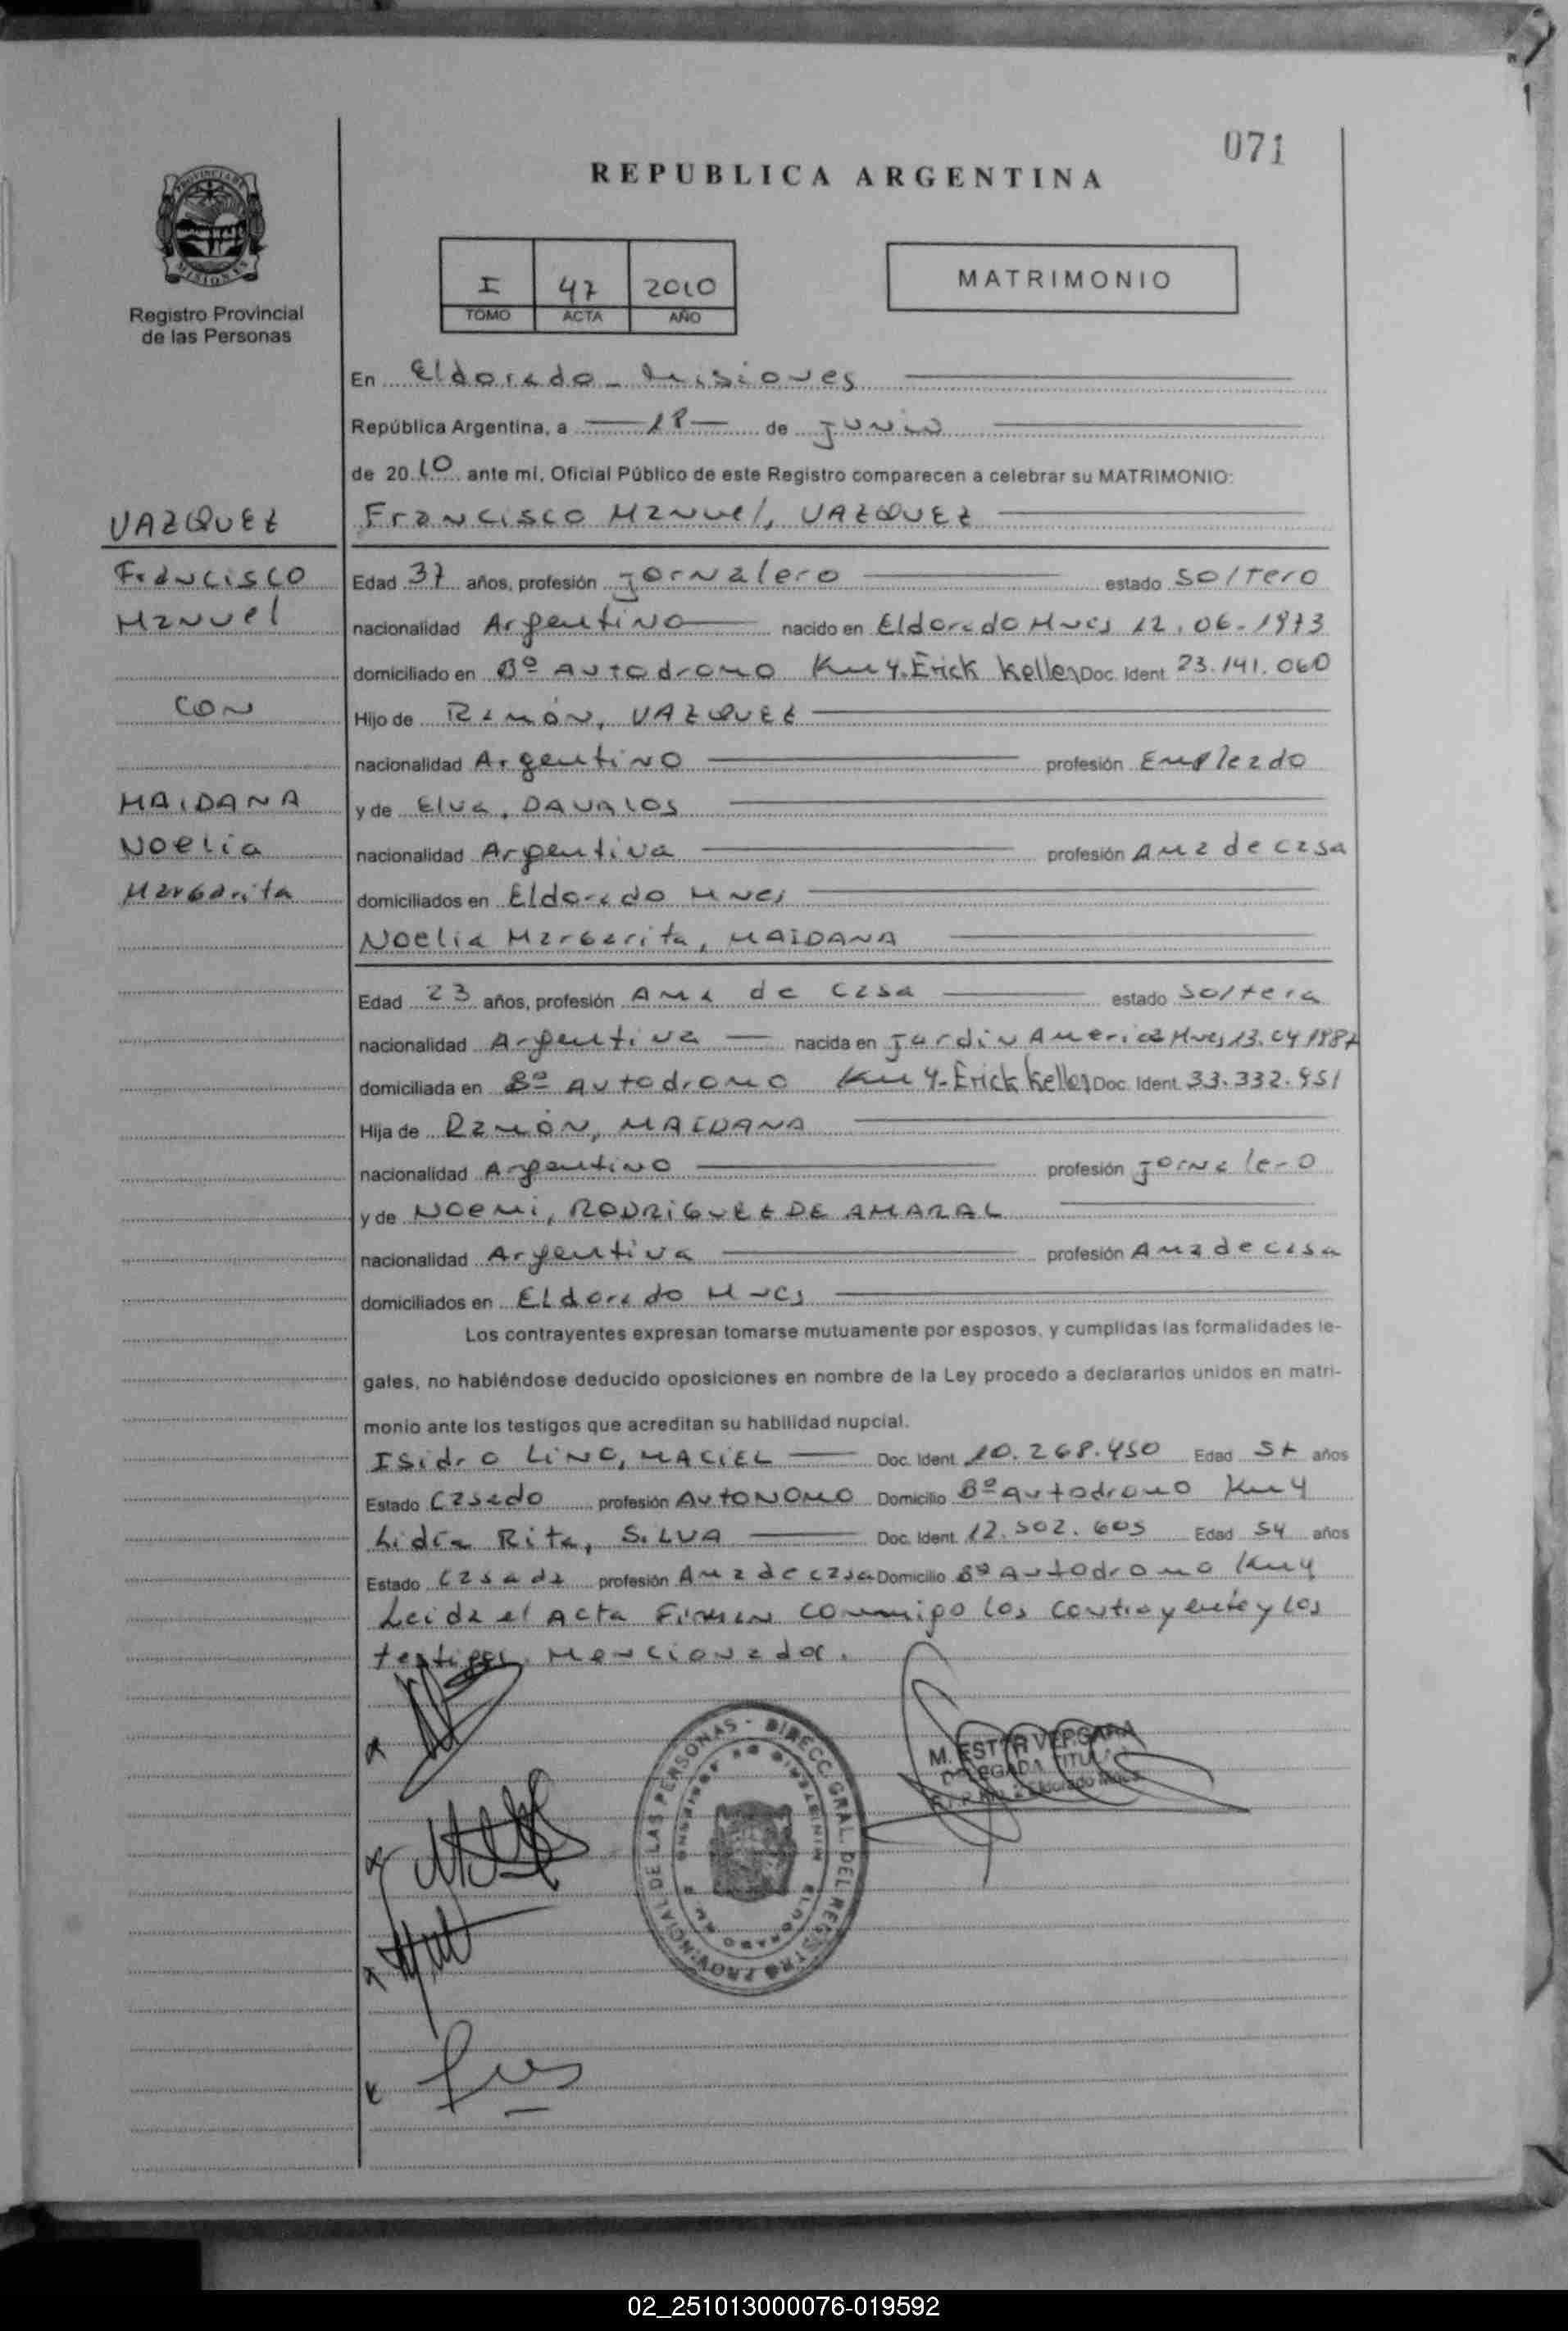 071
REPUBLICA ARGENTINA
PROVINCIA DE MISIONES
Registro Provincial
de las Personas
I 47 2010
TOMO ACTA AÑO
MATRIMONIO
En Eldorado - Misiones
República Argentina, a 18 de junio
de 2010 ante mí, Oficial Público de este Registro comparecen a celebrar su MATRIMONIO:
VAZQUEZ
Francisco Manuel, VAZQUEZ
Francisco
Edad 37 años, profesión jornalero estado soltero
Manuel
nacionalidad Argentino nacido en Eldorado Mnes 12.06.1973
domiciliado en Bº Autodromo Km 4. Erick Keller Doc. Ident. 23.141.060
CON
Hijo de Ramón, VAZQUEZ
nacionalidad Argentino profesión Empleado
MAIDANA
y de Elva, DAVALOS
Noelia
nacionalidad Argentina profesión Ama de casa
Margarita
domiciliados en Eldorado Mnes
Noelia Margarita, MAIDANA
Edad 23 años, profesión Ama de casa estado soltera
nacionalidad Argentina nacida en Jardin America Mnes 13.04 1987
domiciliada en Bº Autodromo Km 4- Erick Keller Doc. Ident. 33.332.951
Hija de Ramón, MAIDANA
nacionalidad Argentino profesión jornalero
y de Noemi, RODRIGUEZ DE AMARAL
nacionalidad Argentina profesión Ama de casa
domiciliados en Eldorado Mnes
Los contrayentes expresan tomarse mutuamente por esposos, y cumplidas las formalidades le-
gales, no habiéndose deducido oposiciones en nombre de la Ley procedo a declararlos unidos en matri-
monio ante los testigos que acreditan su habilidad nupcial.
Isidro Lino, MACIEL Doc. Ident. 10.268.450 Edad años
Estado Casado profesión AUTONOMO Domicilio Bº Autodromo Km 4
Lidia Rita, SILVA Doc. Ident. 12.502.605 Edad 54 años
Estado Casada profesión Ama de casa Domicilio Bº Autodromo Km 4
Leida el Acta Firman conmigo los contrayente y los
testigos mencionados.
M. ESTER VERGARA
DELEGADA TITULAR
Eldorado Mnes.
DIRECC. GRAL. DEL REGISTRO PROVINCIAL DE LAS PERSONAS -
02_251013000076-019592